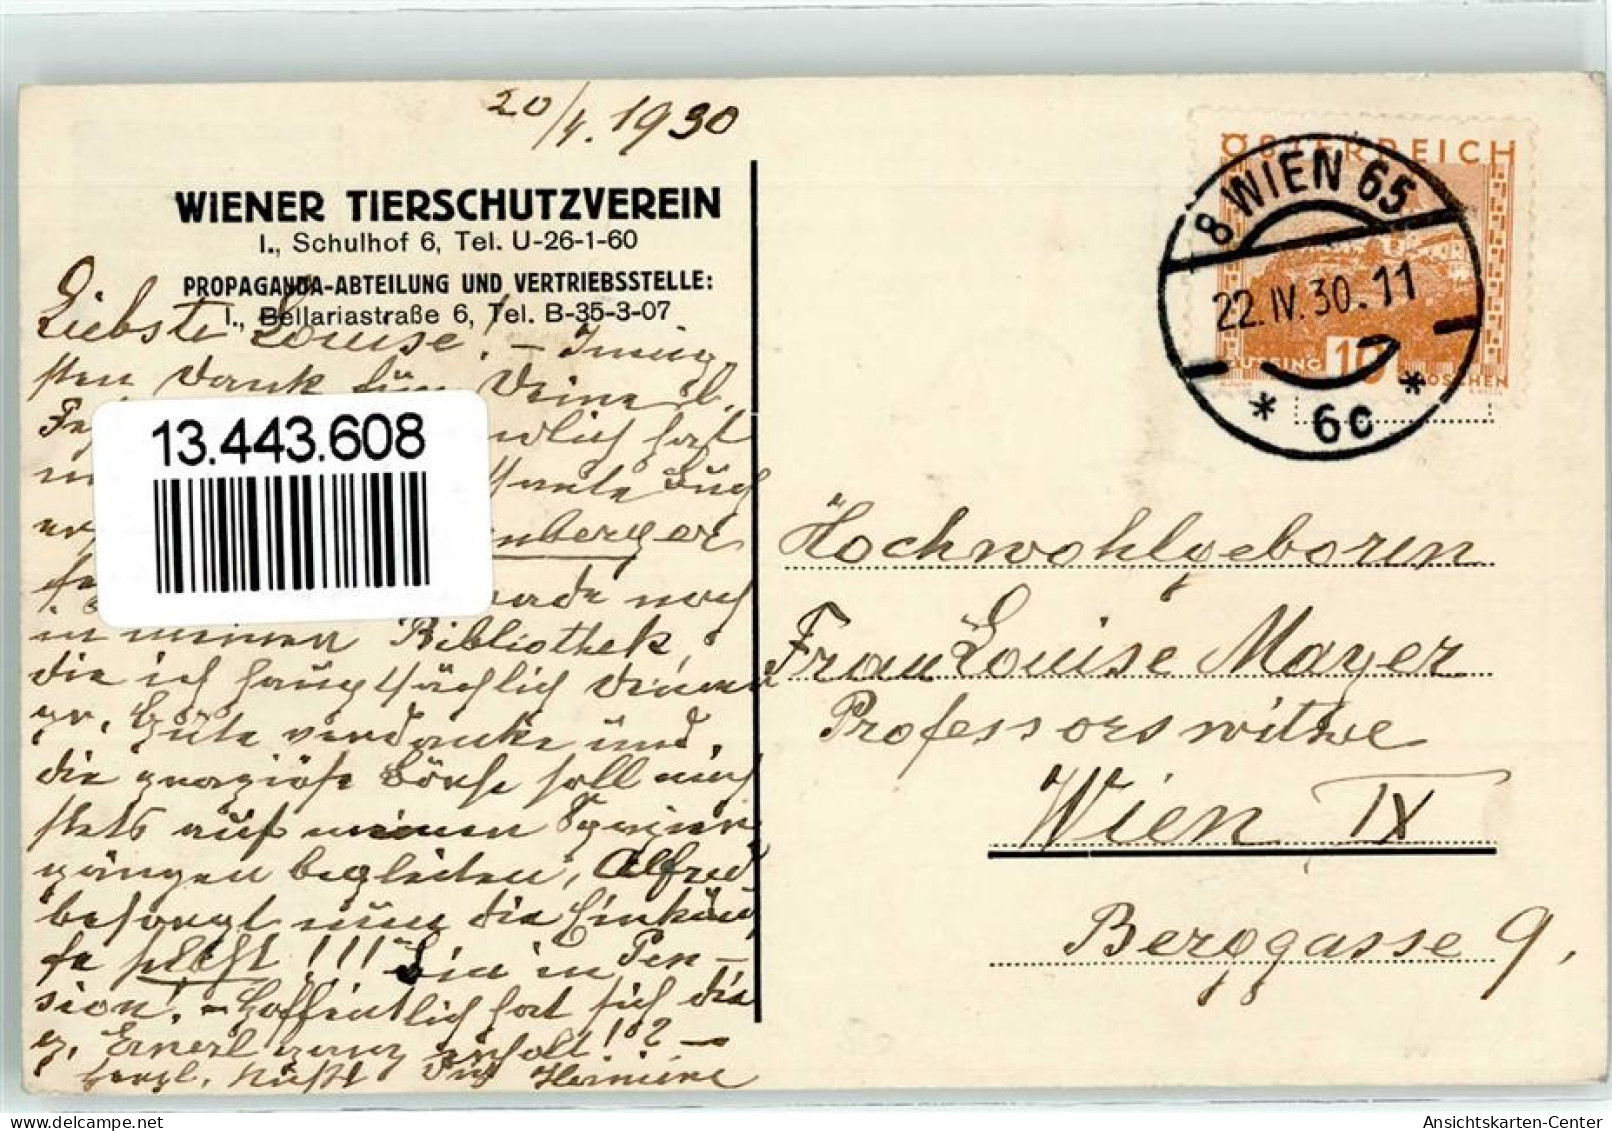 20/4. 1930
WIENER TIERSCHUTZVEREIN
I., Schulhof 6, Tel. U-26-1-60
PROPAGANDA-ABTEILUNG UND VERTRIEBSSTELLE:
I., Bellariastraße 6, Tel. B-35-3-07
Liebste Louise! – Innig-
sten Dank für Deine l.
hast
13.443.608
nberger
noch
in meiner Bibliothek,
die ich hauptsächlich Deiner
gr. Güte verdanke und
die graziöse Börse soll mich
stets auf meinen Spazier-
gängen begleiten, Alfred
besorgt nun die Einkäu-
fe selbst!!! Bin in Pen-
sion! – Hoffentlich hat sich die
g. Ernerl ganz erholt!? –
herzl. küßt Dich Hermine
ÖSTERREICH
GÜSSING 10 GROSCHEN
8 WIEN 65
22.IV.30.11
* 6c *
Hochwohlgeboren
Frau Louise Mayer
Professorswitwe
Wien IX
Berggasse 9,
Ansichtskarten-Center